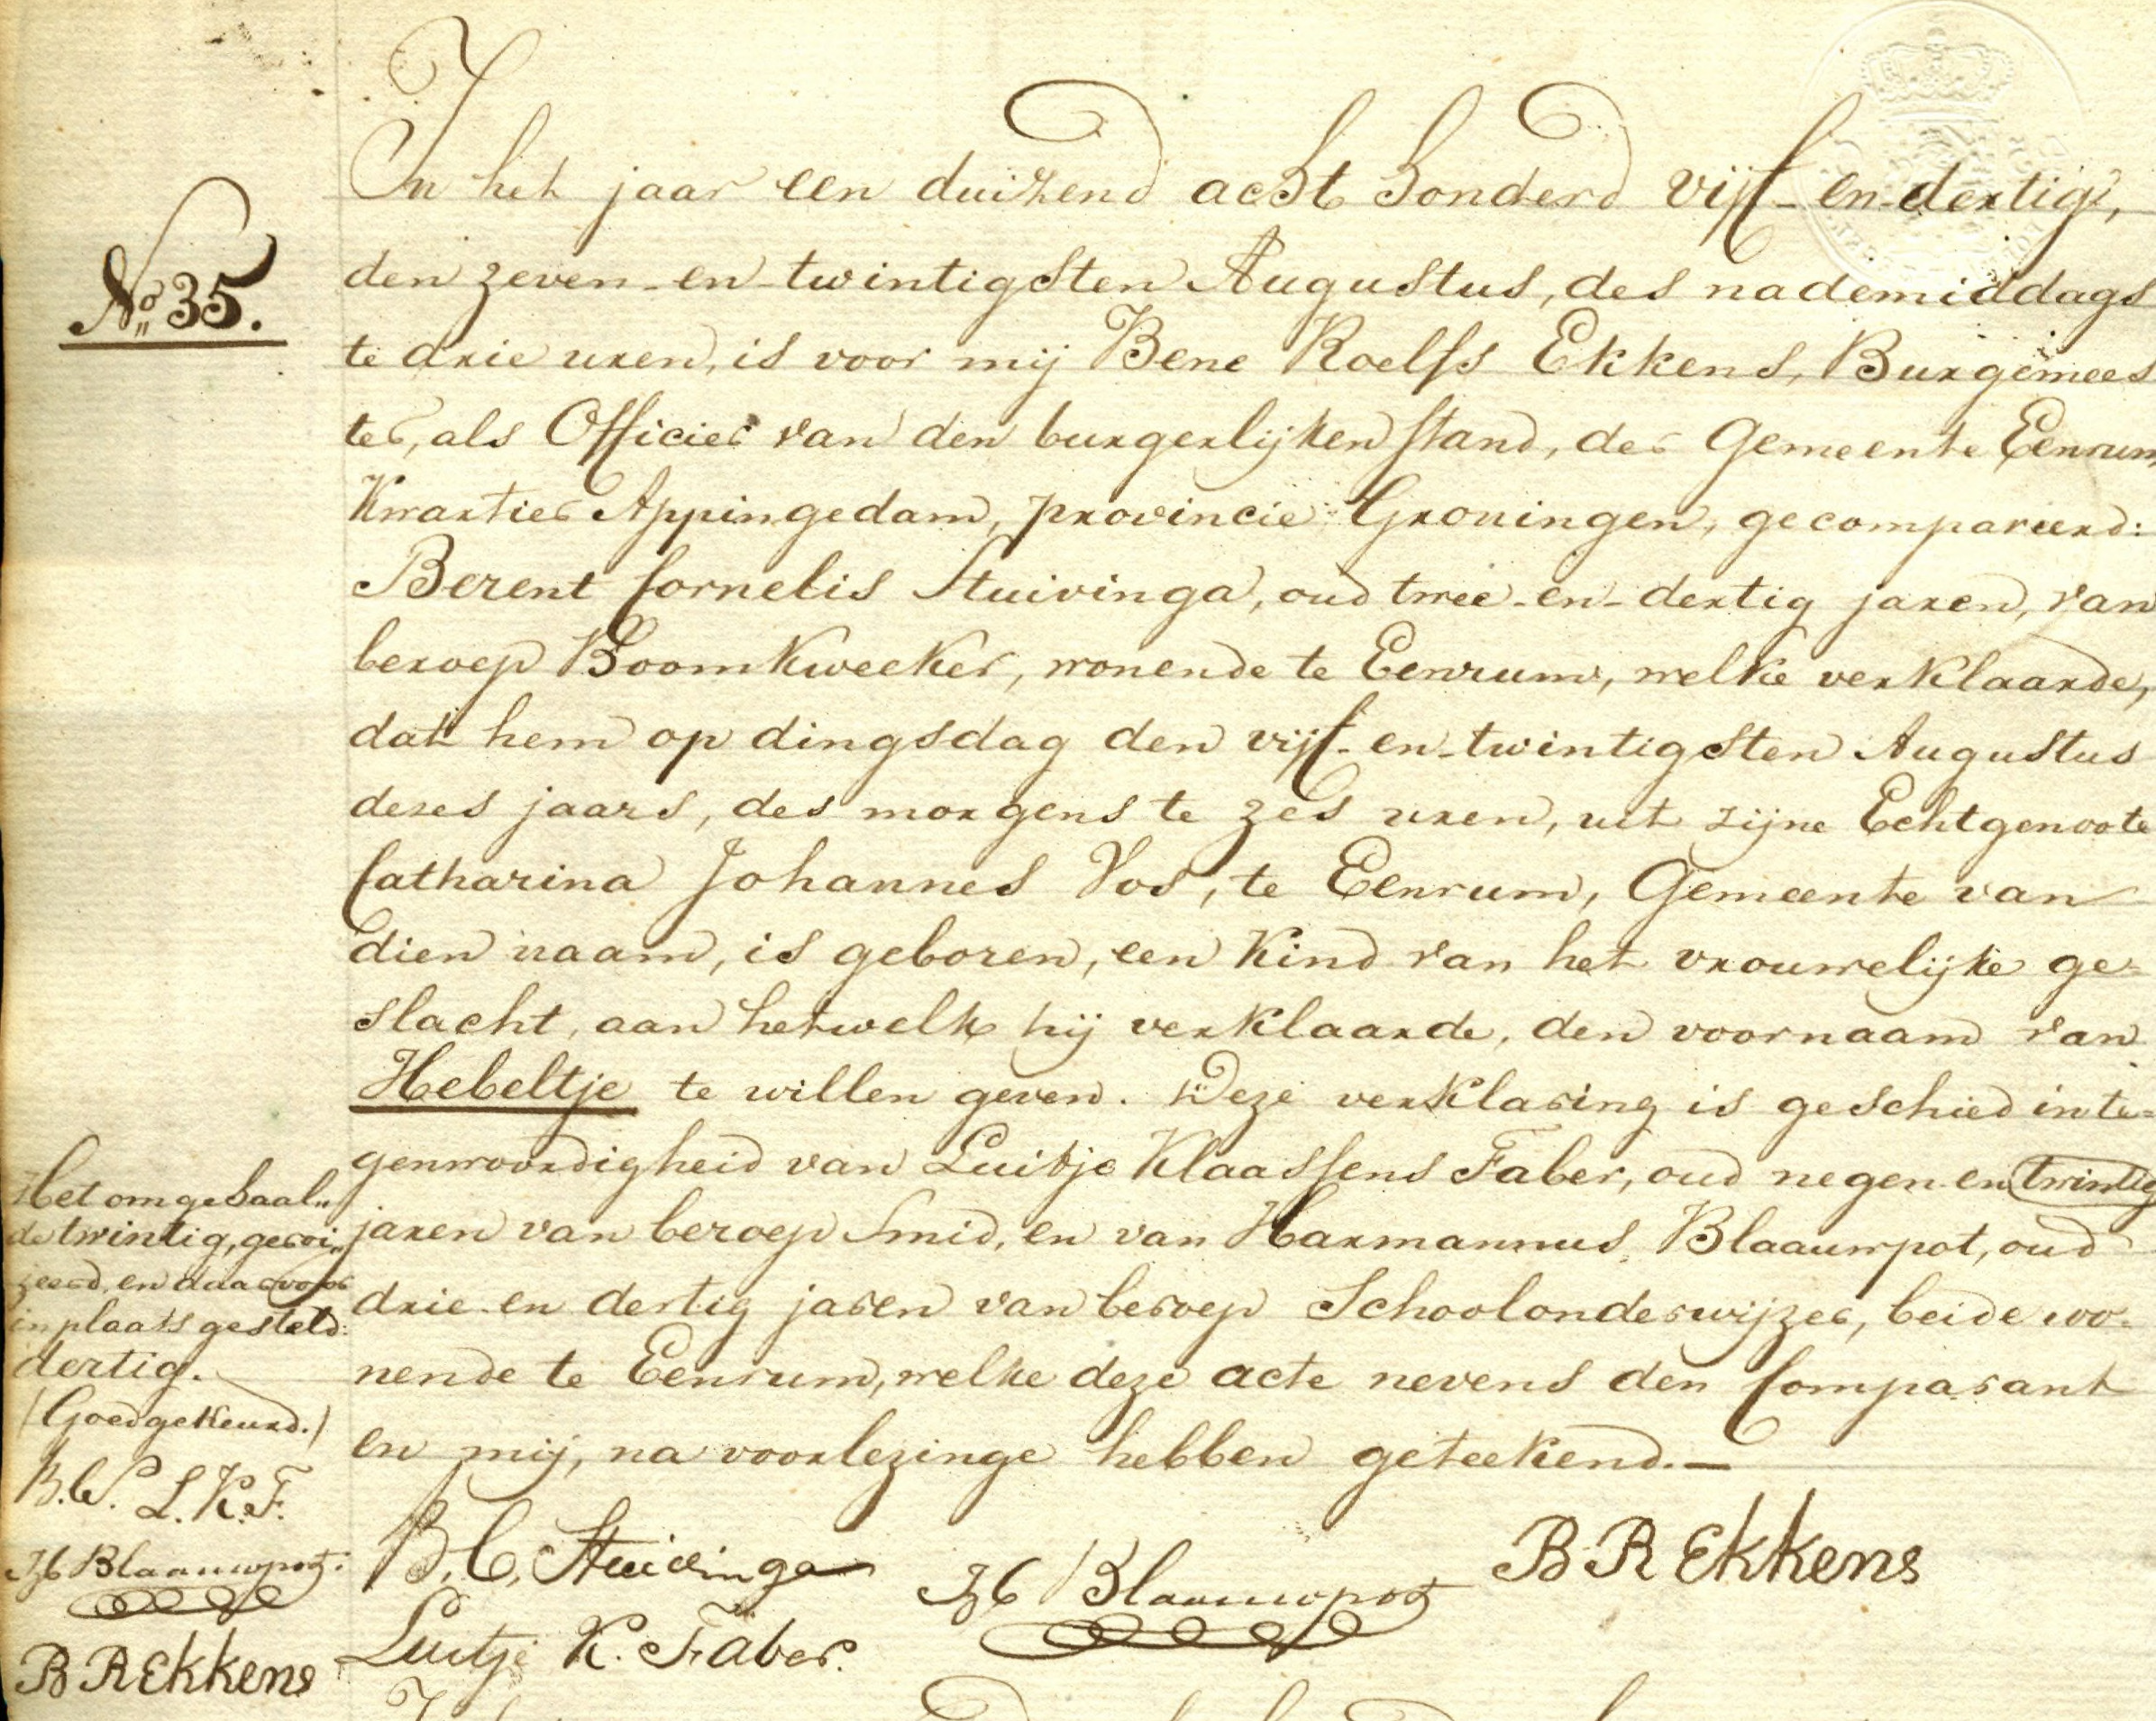 In het jaar een duizend acht honderd vijf-en-dertig,
N⁰ 35.
den zeven-en-twintigsten Augustus, des nademiddags
te drie uren, is voor mij Bene Roelfs Ekkens, Burgemees
ter, als Officier van den burgerlijken stand, der Gemeente Eenrum
Kwartier Appingedam, provincie Groningen, gecompareerd:
Berent Cornelis Stuivinga, oud twee-en-dertig jaren, van
beroep Boomkweeker, wonende te Eenrum, welke verklaarde,
dat hem op dingsdag den vijf-en-twintigsten Augustus
dezes jaars, des morgens te zes uren, uit zijne Echtgenoote
Catharina Johannes Vos, te Eenrum, Gemeente van
dien naam, is geboren, een Kind van het vrouwelijke ge-
slacht, aan hetwelk hij verklaarde, den voornaam van
Hebeltje te willen geven. Deze verklaring is geschied in te=
genwoordigheid van Luitje Klaassens Faber, oud negen en twintig
jaren van beroep Smid, en van Harmannus Blaauwpot, oud
drie en dertig jaren van beroep Schoolonderwijzer, beide wo-
nende te Eenrum, welke deze acte nevens den Comparant
en mij, na voorlezinge hebben geteekend.—
Het omgehaal„
de twintig, geroi„
jeerd, en daarvoor
in plaats gesteld:
dertig.
(Goedgekeurd.)
B.C.S. L.K.F.
H Blaauwpot.
B R Ekkens
B. C. Stuivinga
H Blaauwpot
B R Ekkens
Luitje K. Faber.